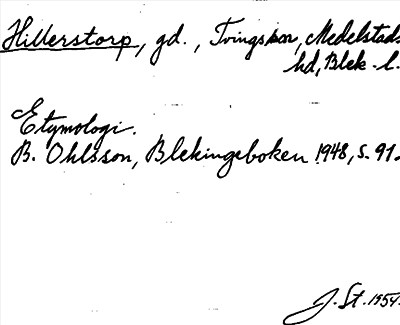 Hillerstorp, gd., Tvingsson, Medelstads
hd, Blek. l.
Etymologi.
B. Ohlsson, Blekingeboken 1948, s. 91.
J. St. 1954.